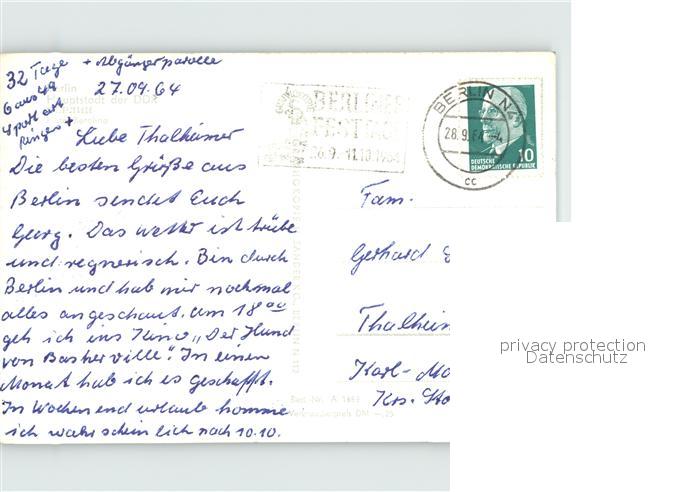 32 Tage + Abgängerparolle
6 aus 49
27.09.64
+
Liebe Thalheimer
Die besten Grüße aus
Berlin sendet Euch
Georg. Das wetter ist trübe
und regnerisch. Bin durch
Berlin und hab mir nochmal
alles angeschaut. um 18 00
geh ich ins Kino „Der Hund
von Baskerville". In einen
Monat hab ich es geschafft.
In Wochenendurlaub komme
ich wahrscheinlich nach 10.10.
Berlin
Hauptstadt der DDR
BERLINER
FESTTAGE
26.9.-11.10.1964
BERLIN N4
28.9.64
cc
10
DEUTSCHE
DEMOKRATISCHE REPUBLIK
Fam.
Gerhard
Thalheim
Karl-Ma
Krs. Sto
Best.-Nr. A 1863
Verbraucherpreis DM -,25
privacy protection
Datenschutz